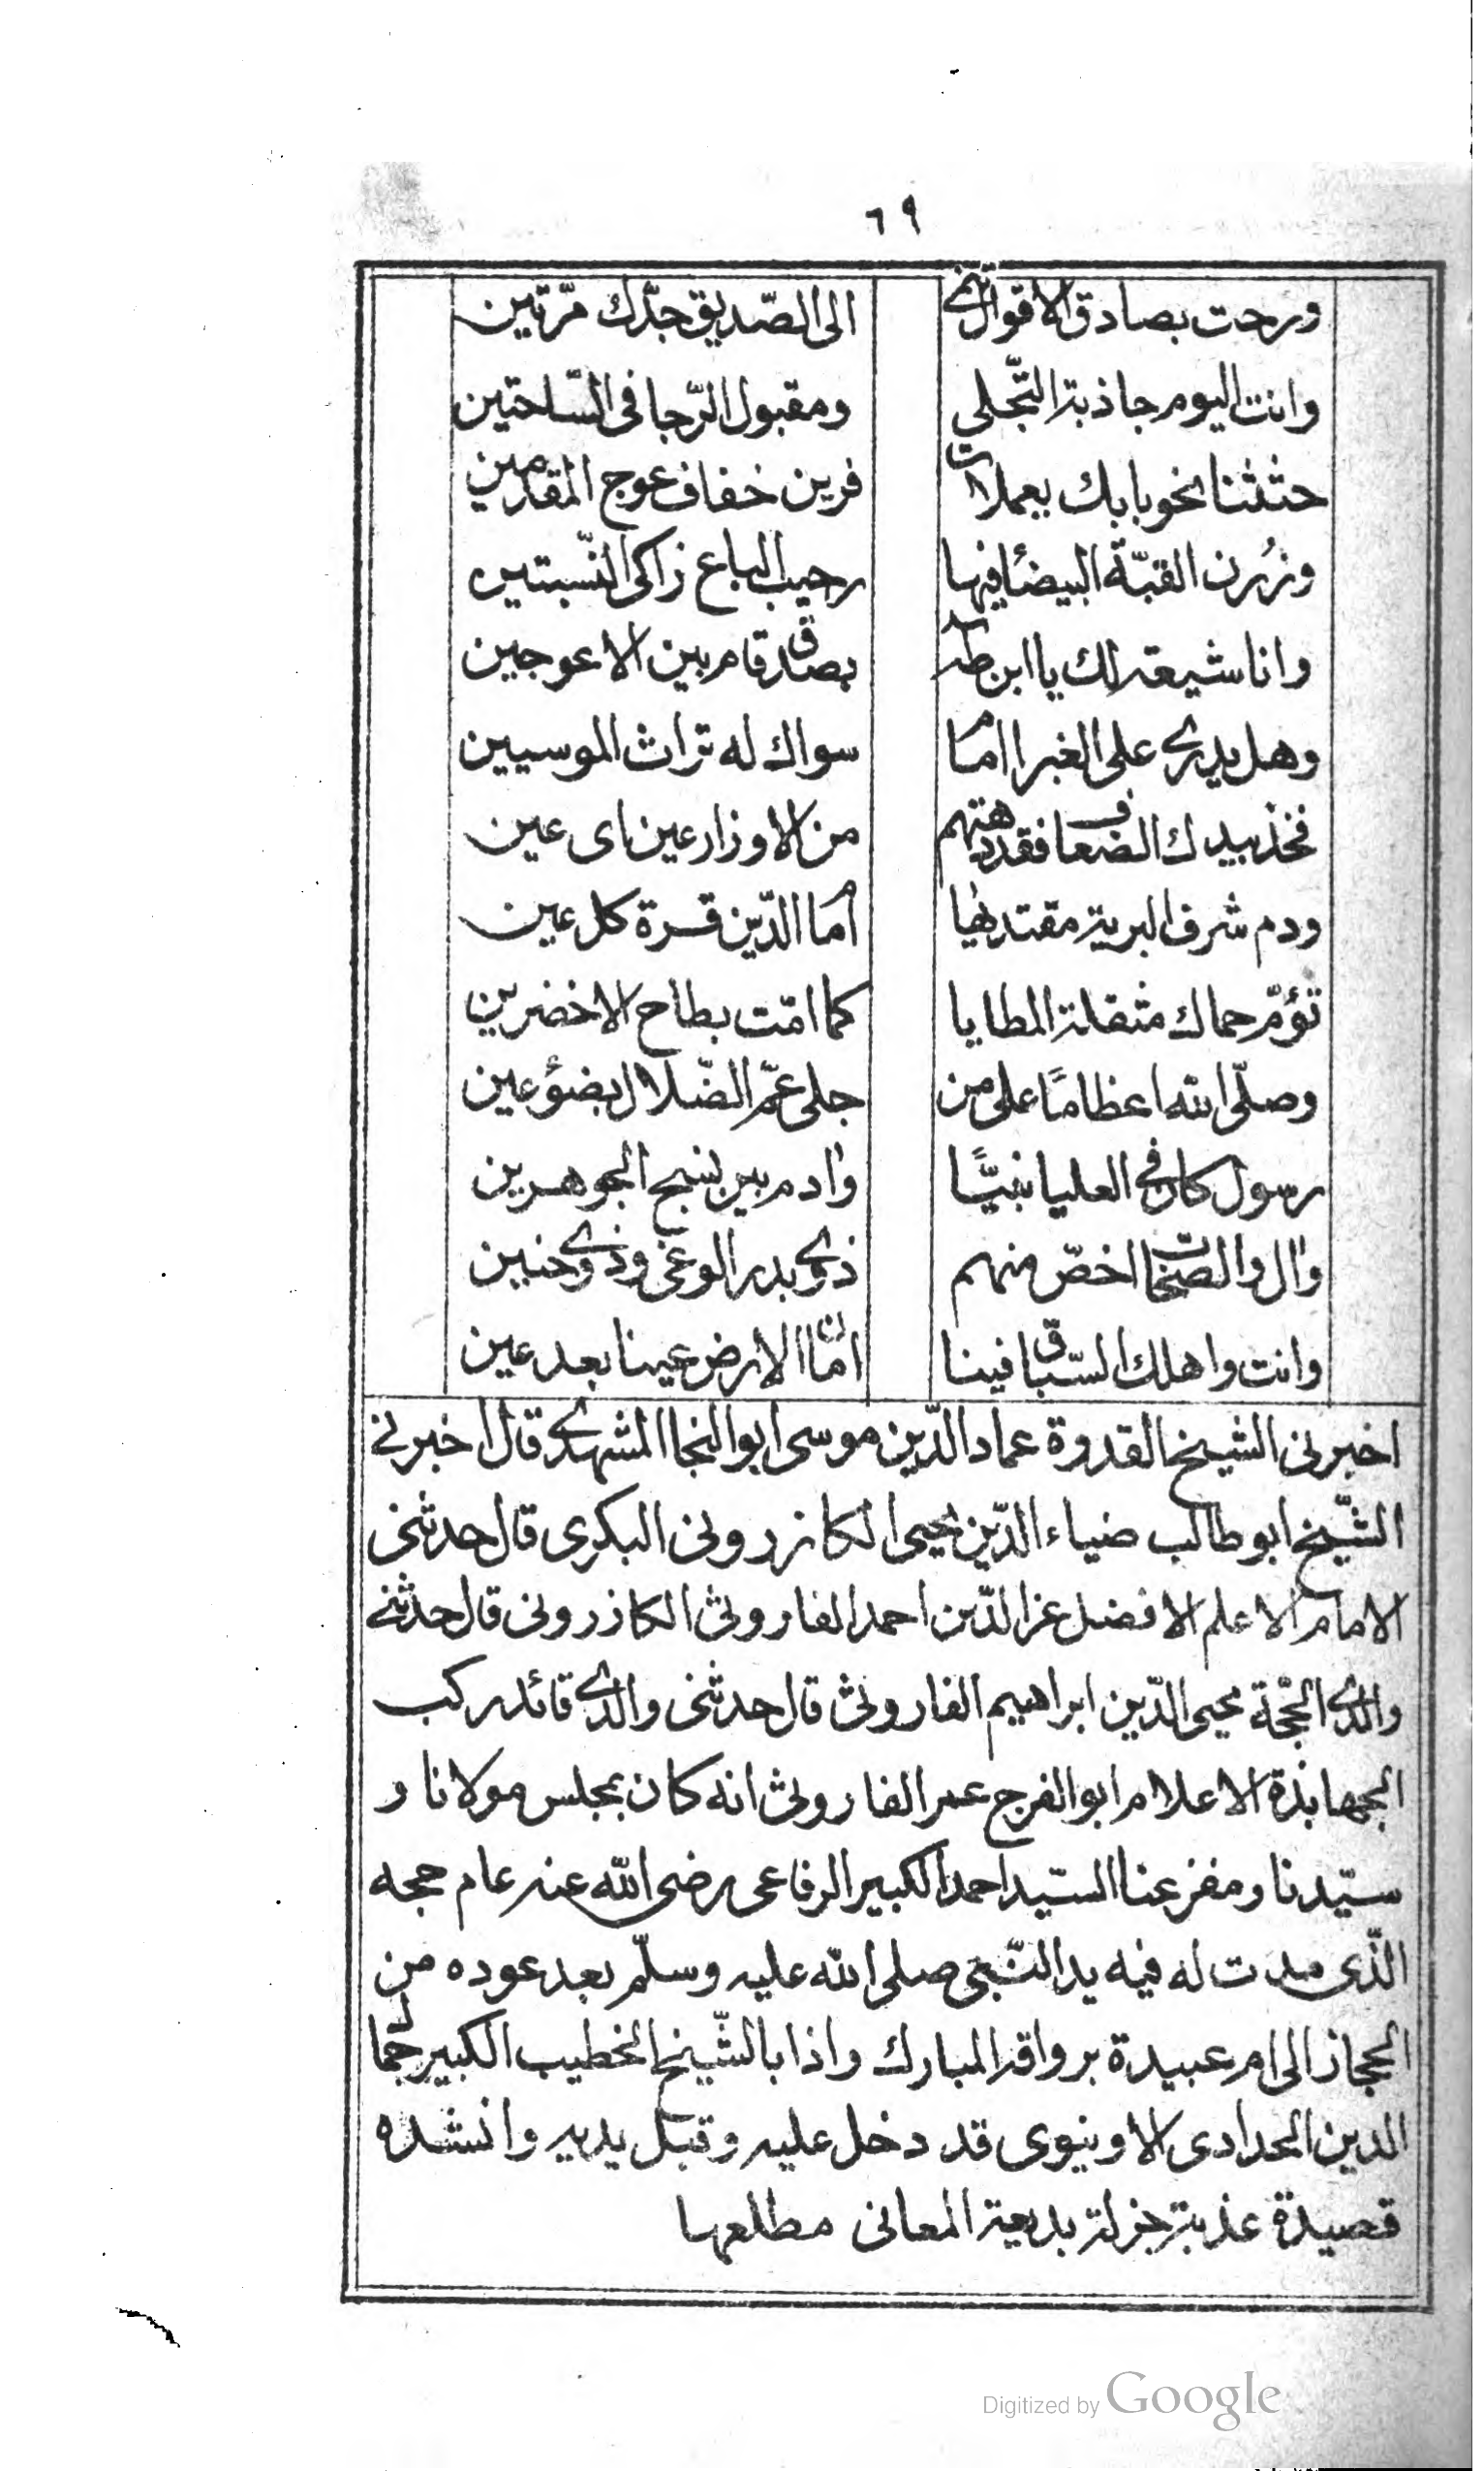 ٦٩
ورحت بصادق الاقوال تنمى الى الصّديق جدّك مرّتين
وانت اليوم جاذبة التّجلى ومقبول الرّجا فى السّاحتين
حثثنا نحو بابك يعملات فرين خفاف عوج المقدمين
وزُرن القبّة البيضٔا فيها رحيب الباع زاكى النّسبتين
وانا شيعة لك يا ابن طه بصدق قام بين الاعوجين
وهل يدرى على الغبرا امام سواك له تراث الموسيين
فخذ بيدك الضعاف فقد دهتهم من الاوزار عين اى عين
ودم شرف البرية مقتديها امام الدّين قرة كل عين
تؤمّ حماك مثقلة المطايا كما امّت بطاح الاخضرين
وصلّى الله اعظاما على من جلى غمّ الضّلال بضؤ عين
رسول كان فى العليا نبيًّا وآدم بين نسج الجوهرين
وآل والصحابات اخصّ منهم ذوى بدر الوغى وذوى حنين
وانت واهلك السّباق فينا امان الارض عينا بعد عين
اخبرنى الشيخ القدوة عماد الدّين موسى ابو النجا المشهدى قال اخبرنى
الشّيخ ابو طالب ضياء الدّين يحيى الكازرونى البكرى قال حدثنى
الامام الاعلم الافضل عز الدّين احمد الفاروثى الكازرونى قال حدثنى
والدى الحجّة محيى الدّين ابراهيم الفاروثى قال حدثنى والدى قائد ركب
الجهابذة الاعلام ابو الفرج عمر الفاروثى انه كان بمجلس مولانا و
سيّدنا ومفزعنا السّيد احمد الكبير الرفاعى رضى الله عنه عام حجه
الّذى مدت له فيه يد النّبى صلى الله عليه وسلّم بعد عوده من
الحجاز الى ام عبيدة برواقه المبارك واذا بالشّيخ الخطيب الكبير جمال
الدين الحدادى الاوينوى قد دخل عليه وقبل يديه وانشده
قصيدة عذبة جزلة بديعة المعانى مطلعها
Digitized by Google